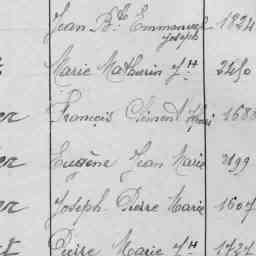 Jean Bte Emmanuel Joseph 1824
Marie Mathurin Jh 2450
er François Clément Henri 1688
er Eugène Jean Marie 2199
er Joseph Pierre Marie 1607
t Pierre Marie Jh 1727